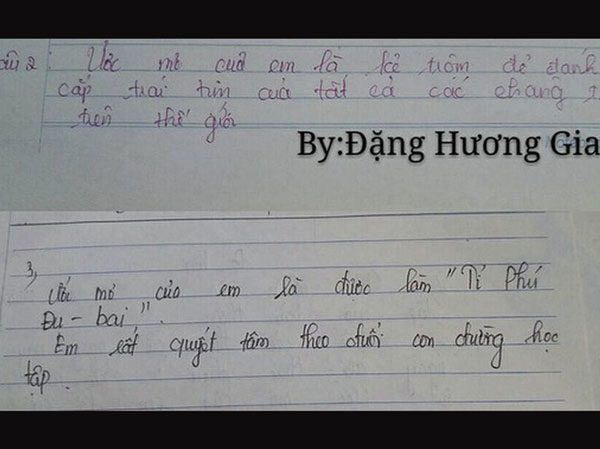 2 Ước mơ của em là kẻ trộm để đánh
cắp trái tim của tất cả các chàng
trên thế giới
By:Đặng Hương Gia
3,
Ước mơ của em là được làm "Tỉ Phú
Đu - bai".
Em rất quyết tâm theo đuổi con đường học
tập.